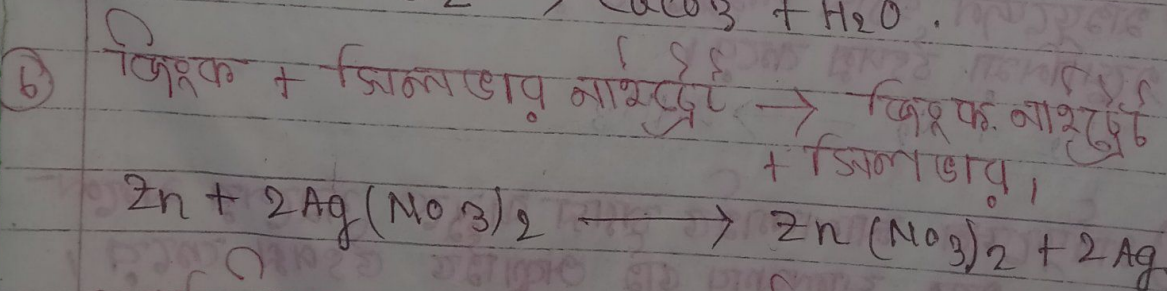 CaCO3 + H2O.
৬ জিংক + সিলভার নাইট্রেট → জিংক নাইট্রেট
+ সিলভার।
Zn + 2Ag(NO3)2 → Zn(NO3)2 + 2Ag